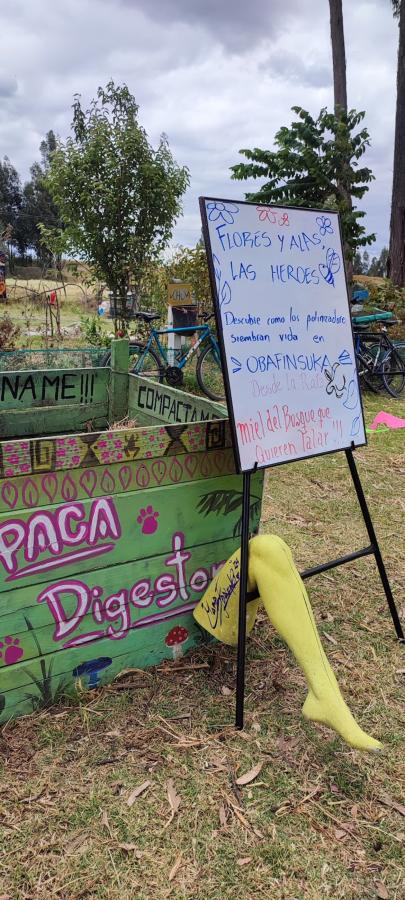 FLORES Y ALAS,
LAS HEROES
Descubre como los polinizadores
siembran vida en
OBAFINSUKA
Desde la Raíz
miel del Bosque que
Quieren Talar!!
NAME!!!
COMPACTAME
PACA
Digestora